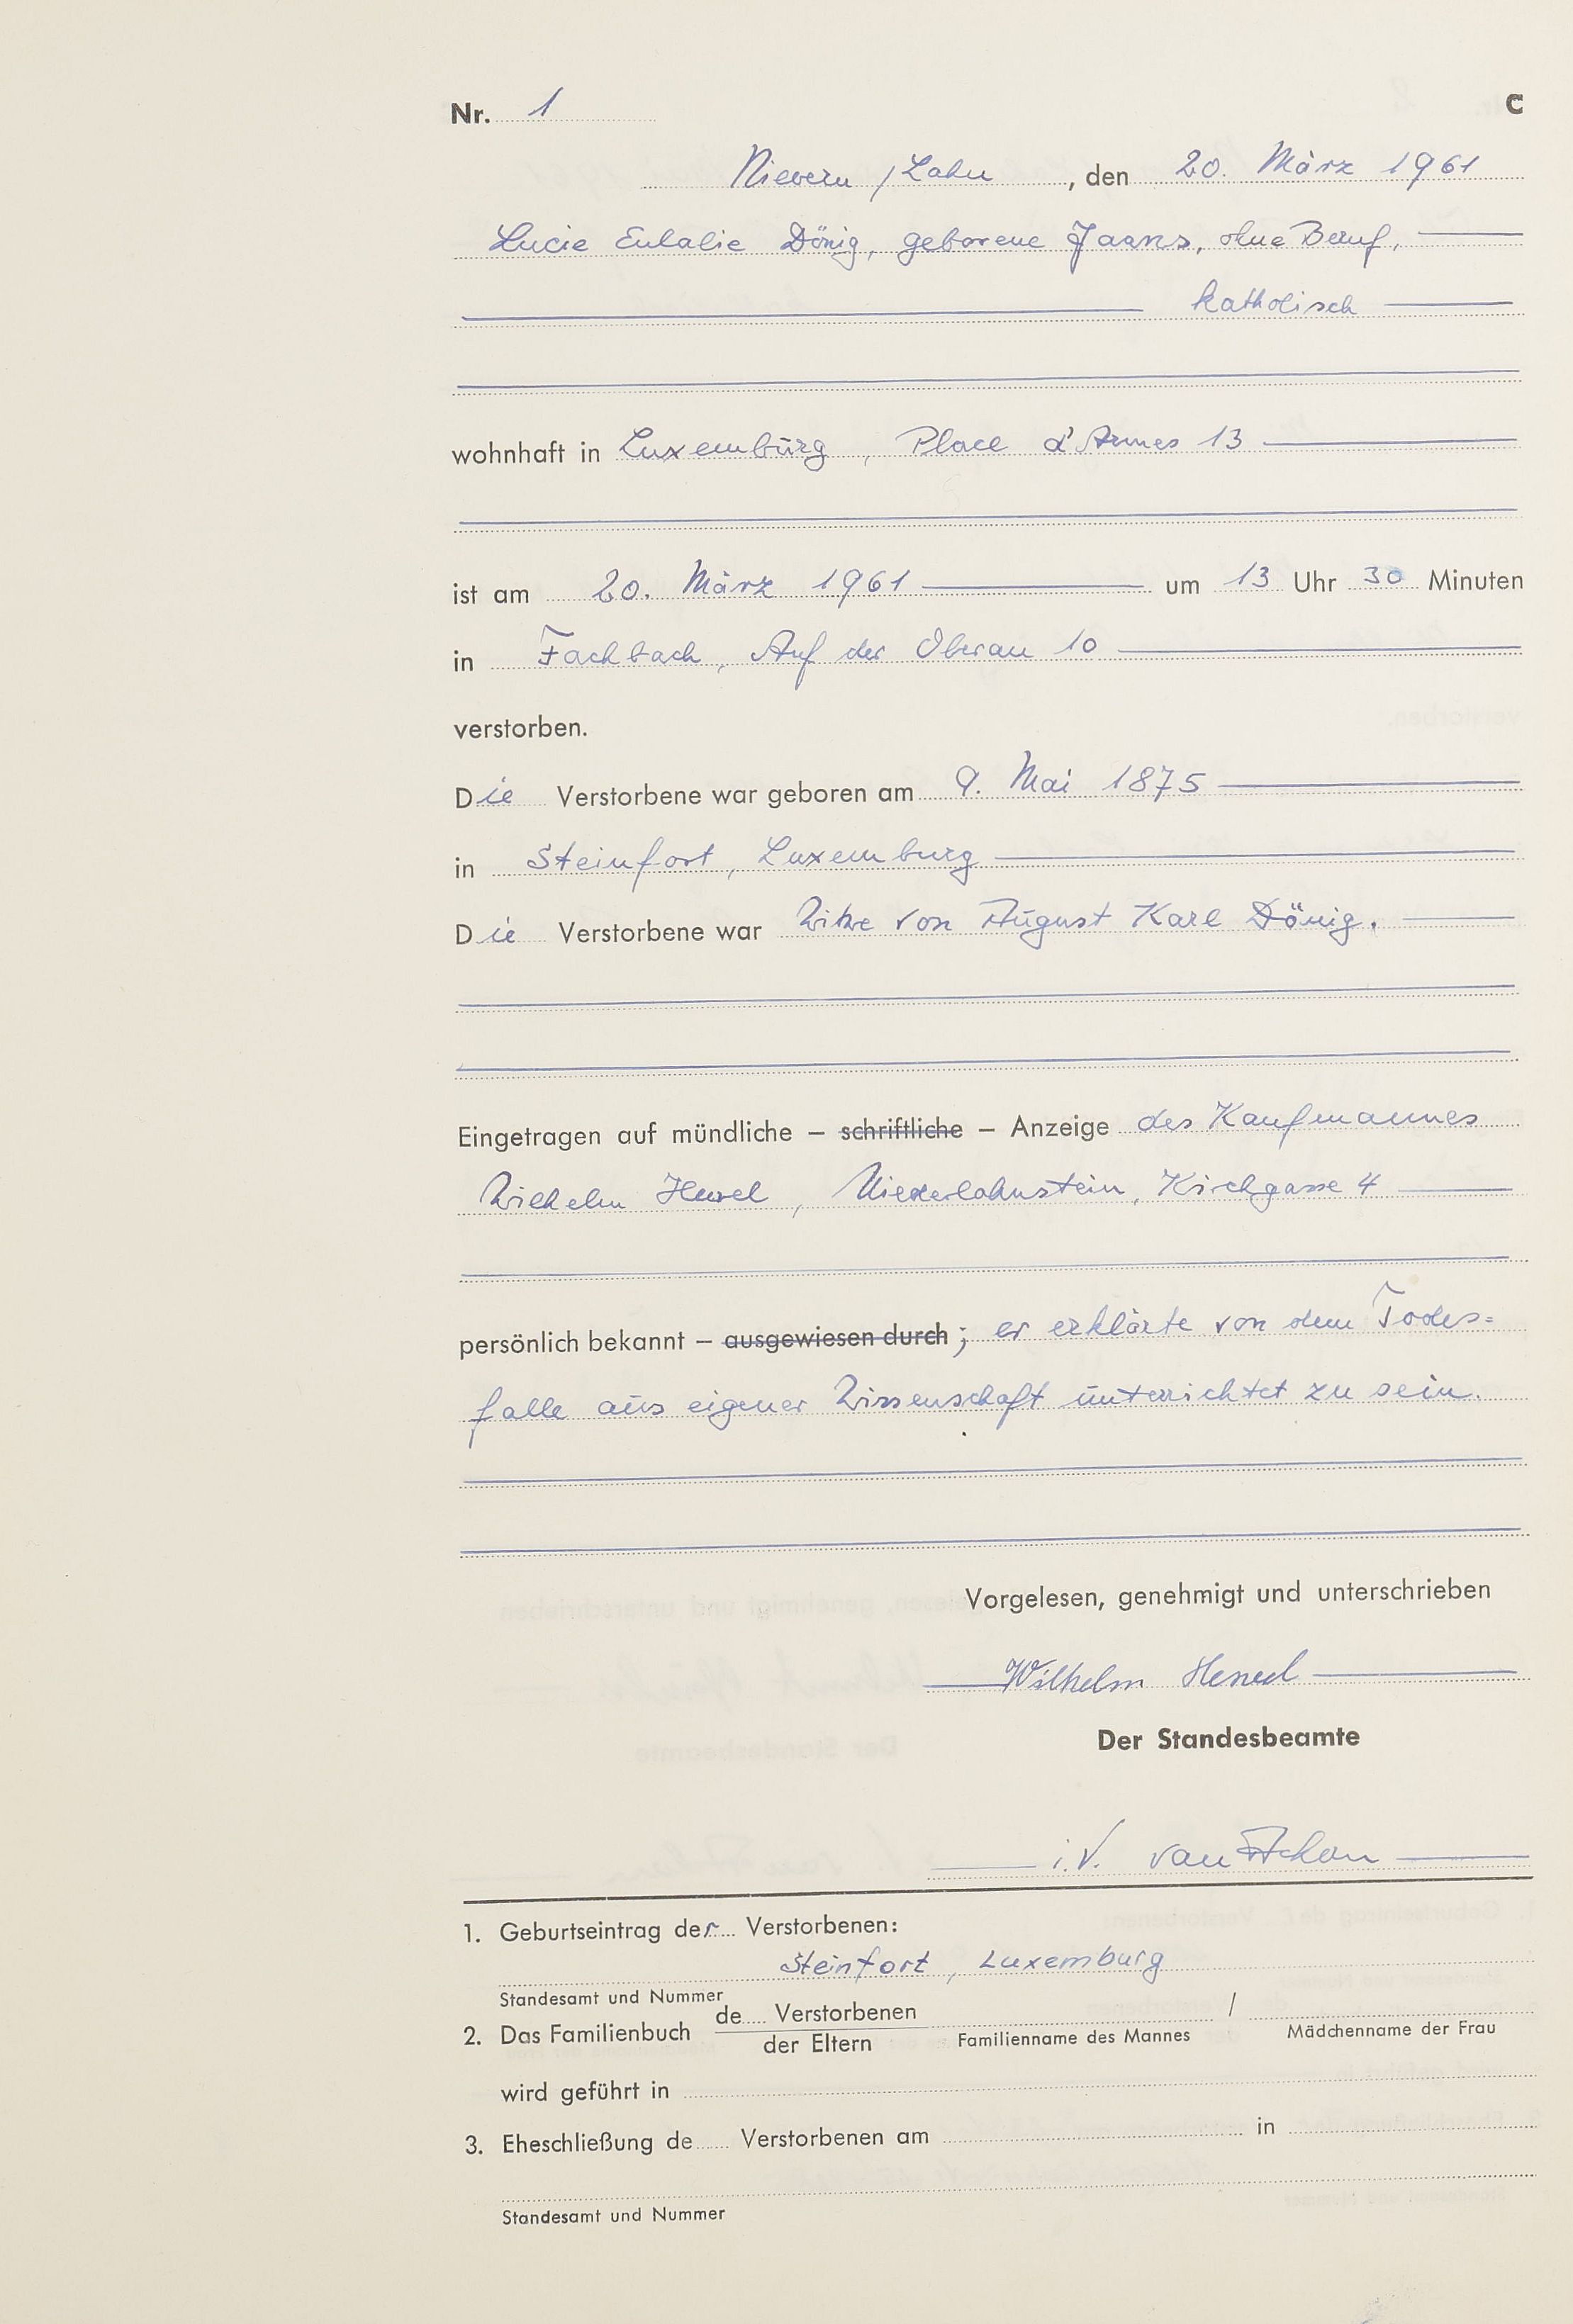 Nr. 1 C
Nievern / Lahn, den 20. März 1961
Lucie Eulalie Dönig, geborene Jaans, ohne Beruf,
katholisch
wohnhaft in Luxemburg, Place d'Armes 13
ist am 20. März 1961 um 13 Uhr 30 Minuten
in Fachbach, Auf der Oberau 10
verstorben.
Die Verstorbene war geboren am 9. Mai 1875
in Steinfort, Luxemburg
Die Verstorbene war Witwe von August Karl Dönig.
Eingetragen auf mündliche – schriftliche – Anzeige des Kaufmannes
Wilhelm, Niederlahnstein, Kirchgasse 4
persönlich bekannt – ausgewiesen durch; er erklärte von dem Todes=
falle aus eigener Wissenschaft unterrichtet zu sein.
Vorgelesen, genehmigt und unterschrieben
Wilhelm
Der Standesbeamte
i.V. van
1. Geburtseintrag der Verstorbenen:
Steinfort, Luxemburg
Standesamt und Nummer
2. Das Familienbuch de Verstorbenen /
der Eltern Familienname des Mannes Mädchenname der Frau
wird geführt in
3. Eheschließung de Verstorbenen am in
Standesamt und Nummer